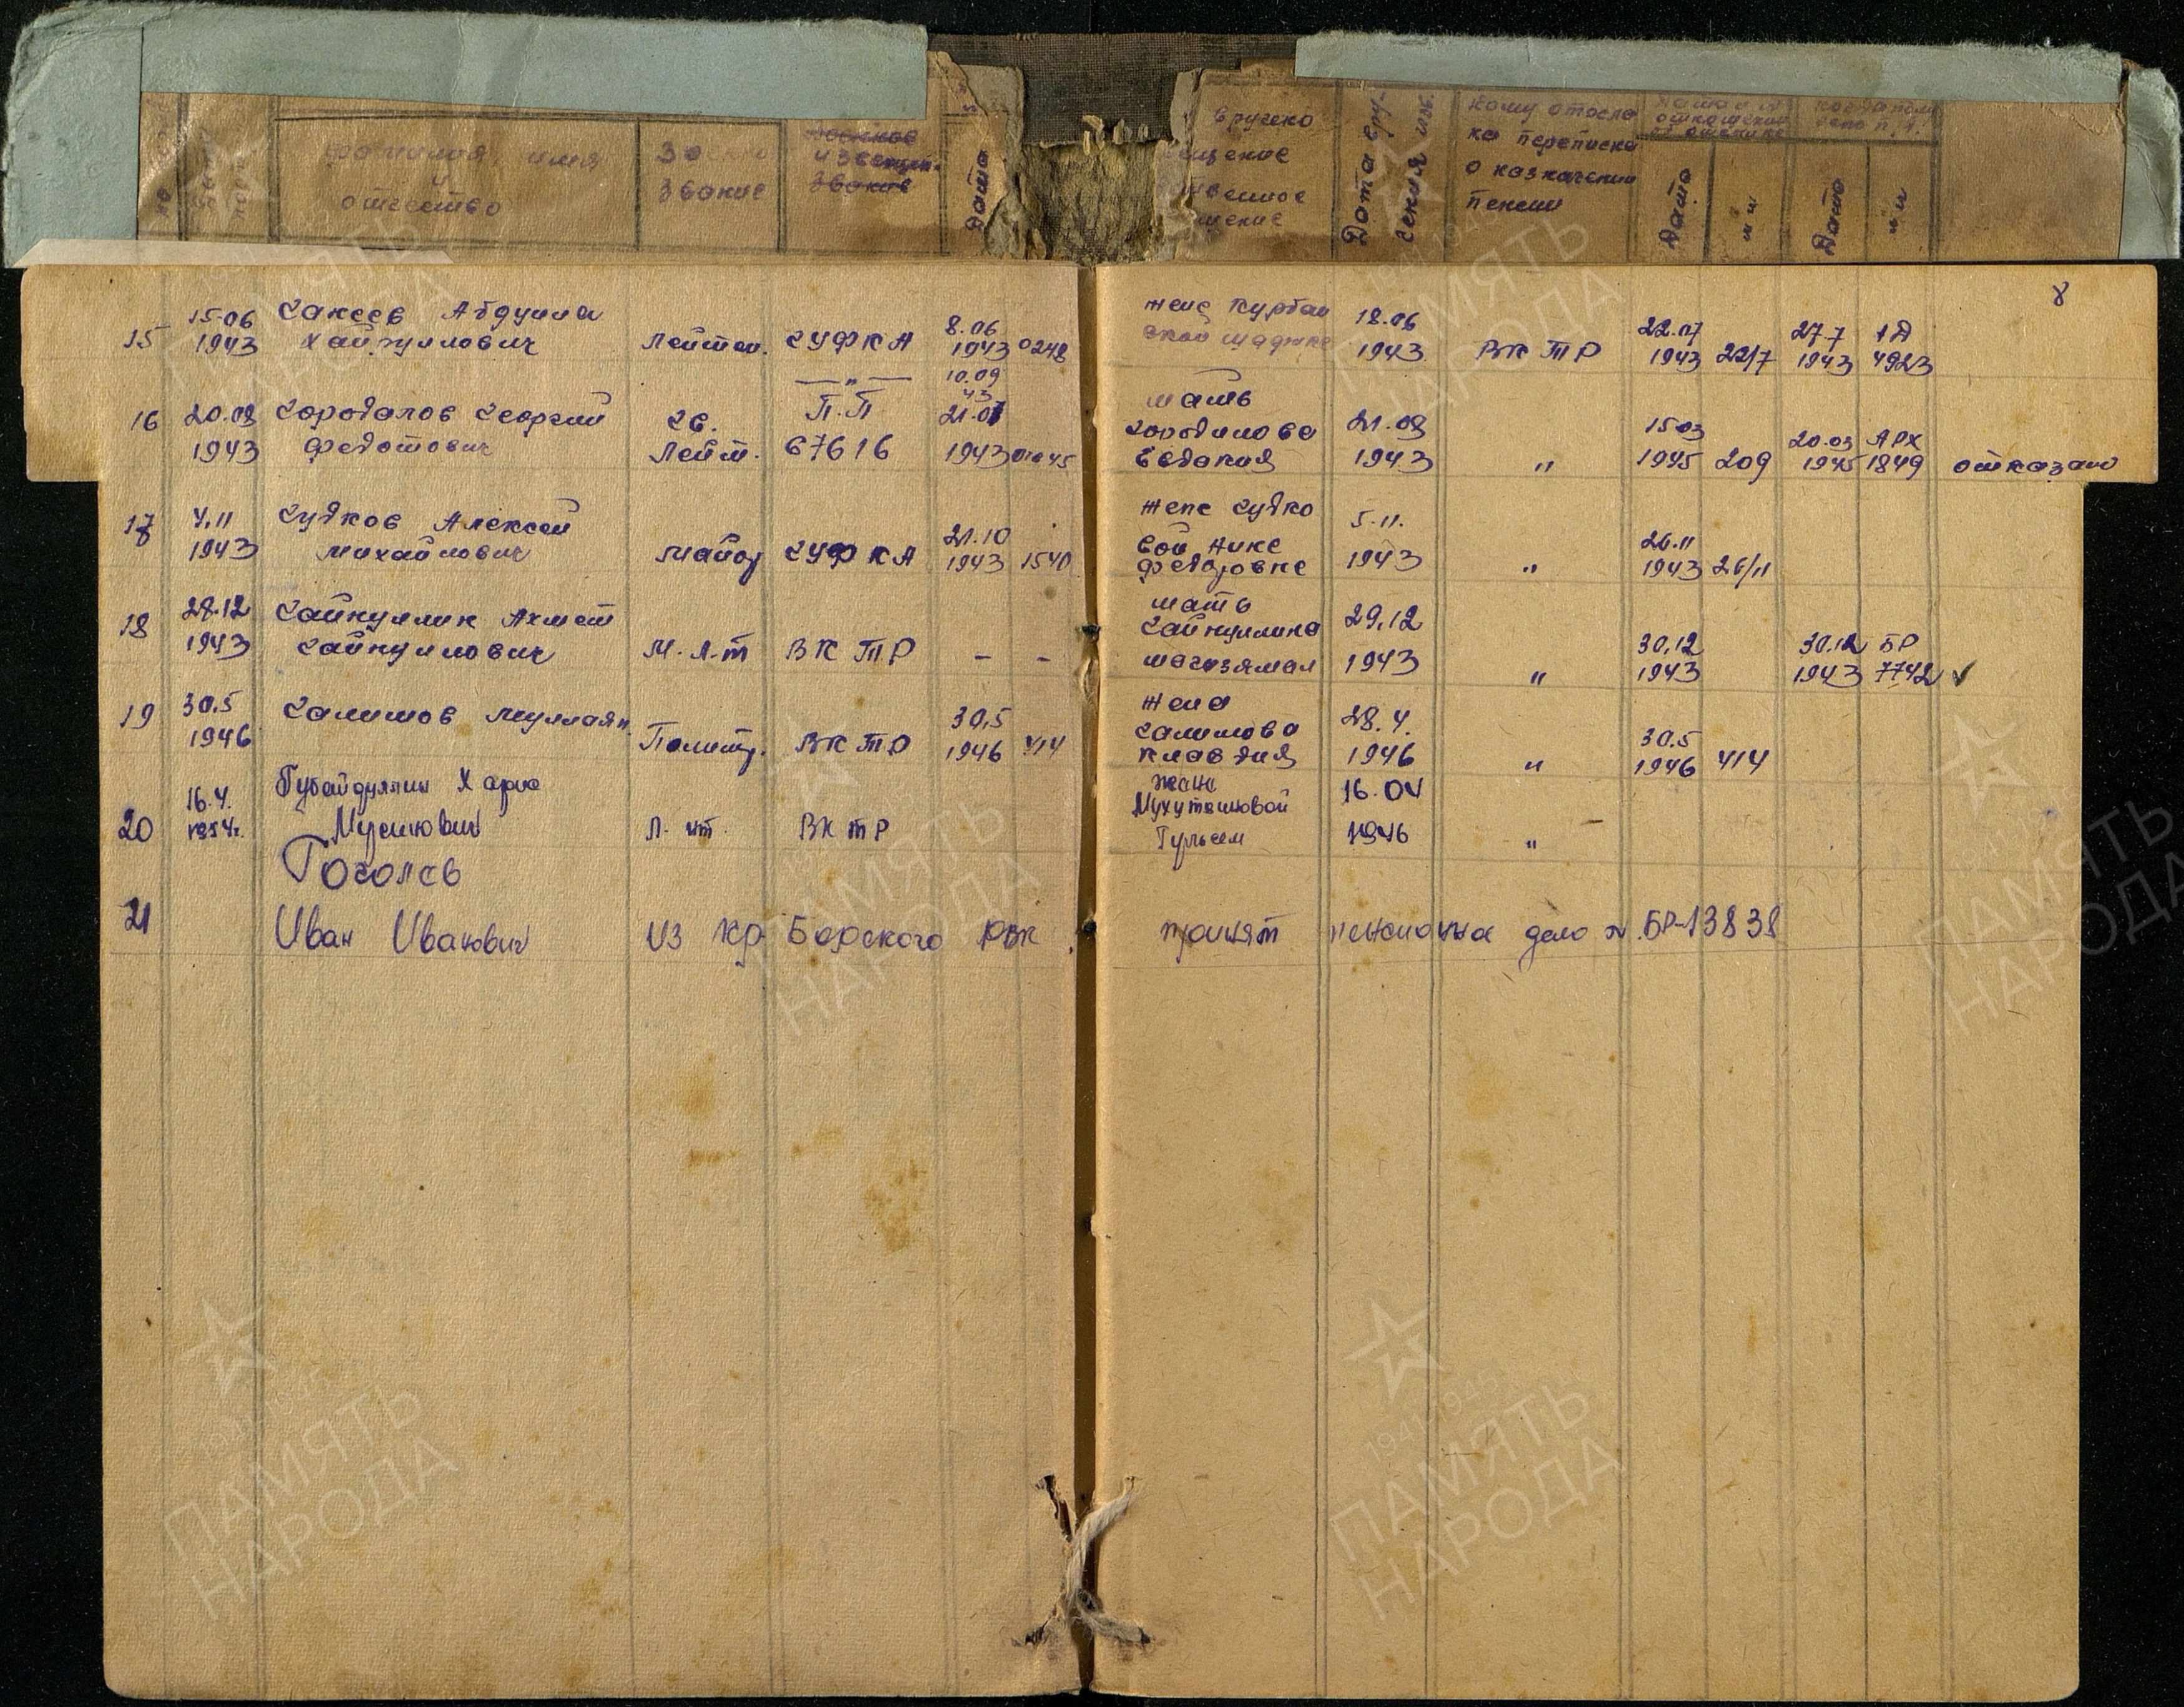 фамилия, имя
и
отчество
звание
извещен.
Дата
вручено
Дата вру-
чения изв.
кому отосла
на переписка
о назначении
пенсии
Дата
№ №
Дата
№ №
8
15
15.06
1943
Гакеев Абдулла
Хайруллович
Лейтен.
ГУФКА
8.06
1943
0248
жене Курбан
18.06
1943
ВК ТР
22.07
1943
22/7
27.7
1943
1Д
4923
16
20.09
1943
Городалов Георгий
Федотович
Гв.
Лейт.
—„—
П.П
67616
10.09
43
21.07
1943
01045
мать
Городилова
Евдокия
21.09
1943
"
15.03
1945
209
20.03
1945
АРХ
1849
отказано
17
4.11
1943
Гудков Алексей
Михайлович
Майор
ГУФКА
21.10
1943
1540
Жене Гудко
вой Анне
Федоровне
5.11.
1943
"
26.11
1943
26/11
18
28.12
1943
Гайнуллин Ахмет
Гайнуллович
М.Л-т
ВК ТР
-
-
мать
Гайнуллина
Магизямал
29.12
1943
"
30.12
1943
30.12
1943
БР
7742
✓
19
30.5
1946
Галимов Муллаян
Политр.
ВК ТР
30.5
1946
414
жена
Галимова
Клавдия
28.4.
1946
"
30.5
1946
414
20
16.4.
1954г.
Губайдуллин Харис
Мусинович
Л-нт.
ВК ТР
жене
Мухутдиновой
Гульсем
16.04
1946
"
21
Гоголев
Иван Иванович
из Кр Борского РВК
принят пенсионное дело № БР-13838
1941-1945
ПАМЯТЬ
НАРОДА